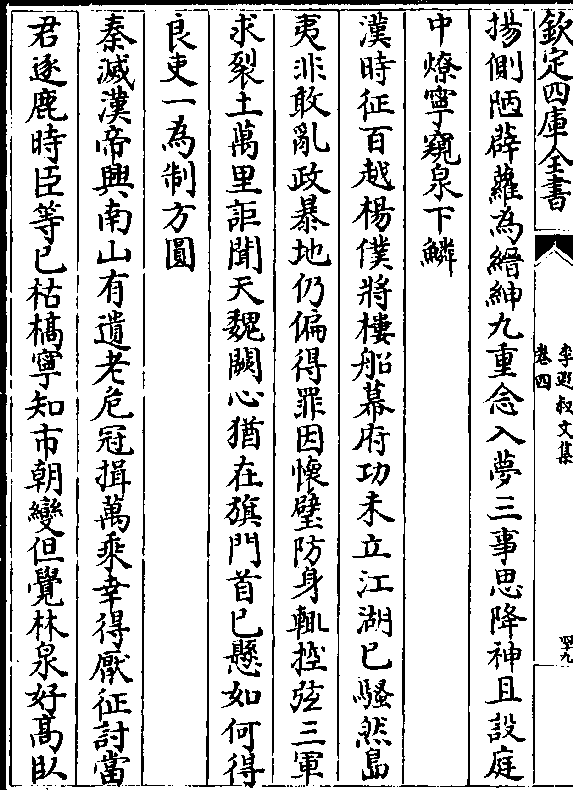 欽定四庫全書
李遐叔文集
卷四
四十九
揚側陋薜蘿為縉紳九重念入夢三事思降神且設庭
中燎寧窺泉下鱗
漢時征百越楊僕將樓船幕府功未立江湖已騷然島
夷非敢亂政暴地仍偏得罪因懷璧防身輒控弦三軍
求裂土萬里詎聞天魏闕心猶在旗門首已懸如何得
良吏一為制方圓
秦滅漢帝興南山有遺老危冠揖萬乘幸得厭征討當
君逐鹿時臣等已枯槁寧知市朝變但覺林泉好高臥